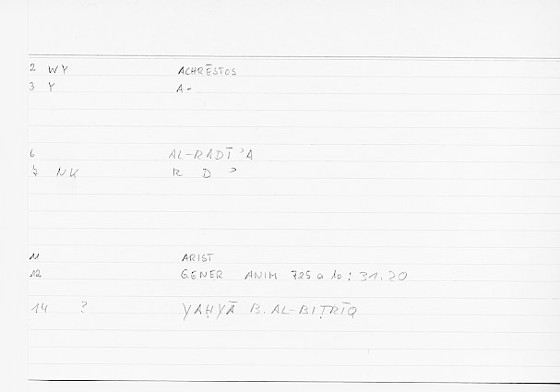 2 WY ACHRĒSTOS
3 Y A-
6 AL-RADĪ ʾA
7 NK R D ʾ
11 ARIST
12 GENER ANIM 725 a 10 : 31.20
14 ? YAḤYĀ B. AL-BIṬRĪQ